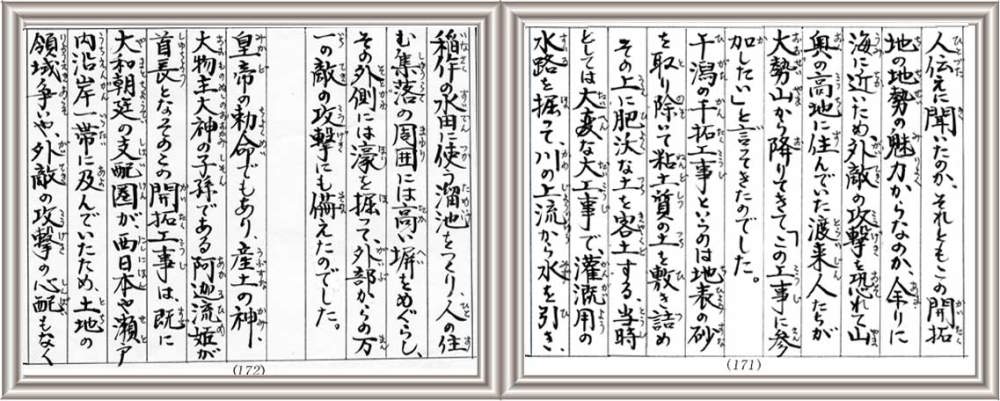 人伝えに聞いたのか、それともこの開拓
地の地勢の魅力からなのか、余りに
海に近いため、外敵の攻撃を恐れて山
奥の高地に住んでいた渡来人たちが
大勢山から降りてきて、「この工事に参
加したい」と言ってきたのでした。
干潟の干拓工事というのは地表の砂
を取り除いて粘土質の土を敷き詰め
その上に肥沃な土を客土する、当時
としては大変な大工事で灌漑用の
水路を掘って、川の上流から水を引き、
(171)
稲作の水田に使う溜池をつくり、人の住
む集落の周囲には高い塀をめぐらし、
その外側には濠を掘って、外部からの万
一の敵の攻撃にも備えたのでした。
皇帝の勅命でもあり、産土の神、
大物主大神の子孫である阿迦流姫が
首長となってのこの開拓工事は、既に
大和朝廷の支配圏が、西日本や瀬戸
内沿岸一帯に及んでいたため、土地の
領域争いや、外敵の攻撃の心配もなく
(172)